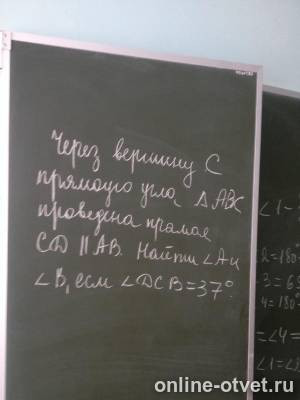 Через вершину C
прямого угла △ABC
проведена прямая
CD || AB. Найти ∠A и
∠B, если ∠DCB = 37°.
∠1 -
2 = 180
3 = 6
4 = 180
= ∠4 =
∠1 = ∠
online-otvet.ru